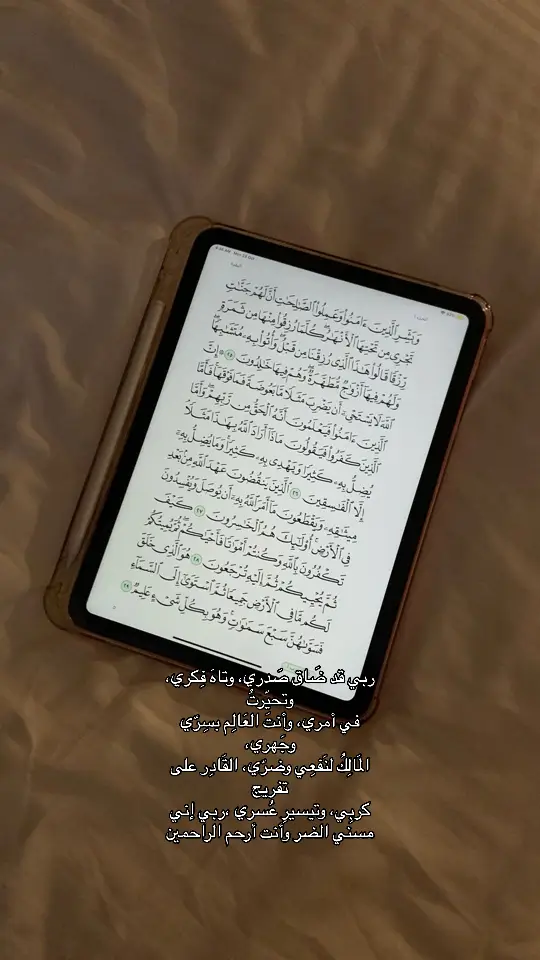 البقرة
الجزء ١
وَبَشِّرِ الَّذِينَ ءَامَنُوا وَعَمِلُوا الصَّالِحَاتِ أَنَّ لَهُمْ جَنَّاتٍ
تَجْرِي مِن تَحْتِهَا الْأَنْهَارُ كُلَّمَا رُزِقُوا مِنْهَا مِن ثَمَرَةٍ
رِّزْقًا قَالُوا هَٰذَا الَّذِي رُزِقْنَا مِن قَبْلُ وَأُتُوا بِهِ مُتَشَابِهًا
وَلَهُمْ فِيهَا أَزْوَاجٌ مُّطَهَّرَةٌ وَهُمْ فِيهَا خَالِدُونَ ٢٥ ۞ إِنَّ
اللَّهَ لَا يَسْتَحْيِي أَن يَضْرِبَ مَثَلًا مَّا بَعُوضَةً فَمَا فَوْقَهَا فَأَمَّا
الَّذِينَ ءَامَنُوا فَيَعْلَمُونَ أَنَّهُ الْحَقُّ مِن رَّبِّهِمْ وَأَمَّا
الَّذِينَ كَفَرُوا فَيَقُولُونَ مَاذَا أَرَادَ اللَّهُ بِهَٰذَا مَثَلًا
يُضِلُّ بِهِ كَثِيرًا وَيَهْدِي بِهِ كَثِيرًا وَمَا يُضِلُّ بِهِ
إِلَّا الْفَاسِقِينَ ٢٦ الَّذِينَ يَنقُضُونَ عَهْدَ اللَّهِ مِن بَعْدِ
مِيثَاقِهِ وَيَقْطَعُونَ مَا أَمَرَ اللَّهُ بِهِ أَن يُوصَلَ وَيُفْسِدُونَ
فِي الْأَرْضِ أُولَٰئِكَ هُمُ الْخَاسِرُونَ ٢٧ كَيْفَ
تَكْفُرُونَ بِاللَّهِ وَكُنتُمْ أَمْوَاتًا فَأَحْيَاكُمْ ثُمَّ يُمِيتُكُمْ
ثُمَّ يُحْيِيكُمْ ثُمَّ إِلَيْهِ تُرْجَعُونَ ٢٨ هُوَ الَّذِي خَلَقَ
لَكُم مَّا فِي الْأَرْضِ جَمِيعًا ثُمَّ اسْتَوَىٰ إِلَى السَّمَاءِ
فَسَوَّاهُنَّ سَبْعَ سَمَاوَاتٍ وَهُوَ بِكُلِّ شَيْءٍ عَلِيمٌ ٢٩
ربي قد ضَاق صَدري، وتاهَ فِكري،
وتحيّرتُ
في أمري، وأنتَ العَالِم بسِرّي
وجَهري،
المَالِكُ لنَفعِي وضرّي، القَادِر على
تفريج
كربِي، وتيسيرِ عُسري ،ربي إني
مسني الضر وأنت أرحم الراحمين